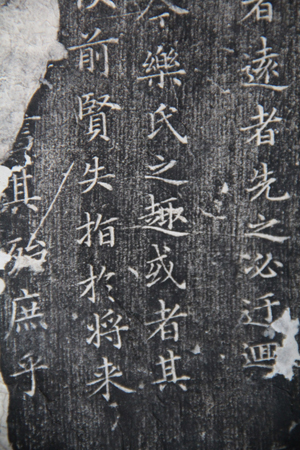 者遠者先之必迂迴
今樂氏之趣或者其
前賢失指於将来
其殆庶乎